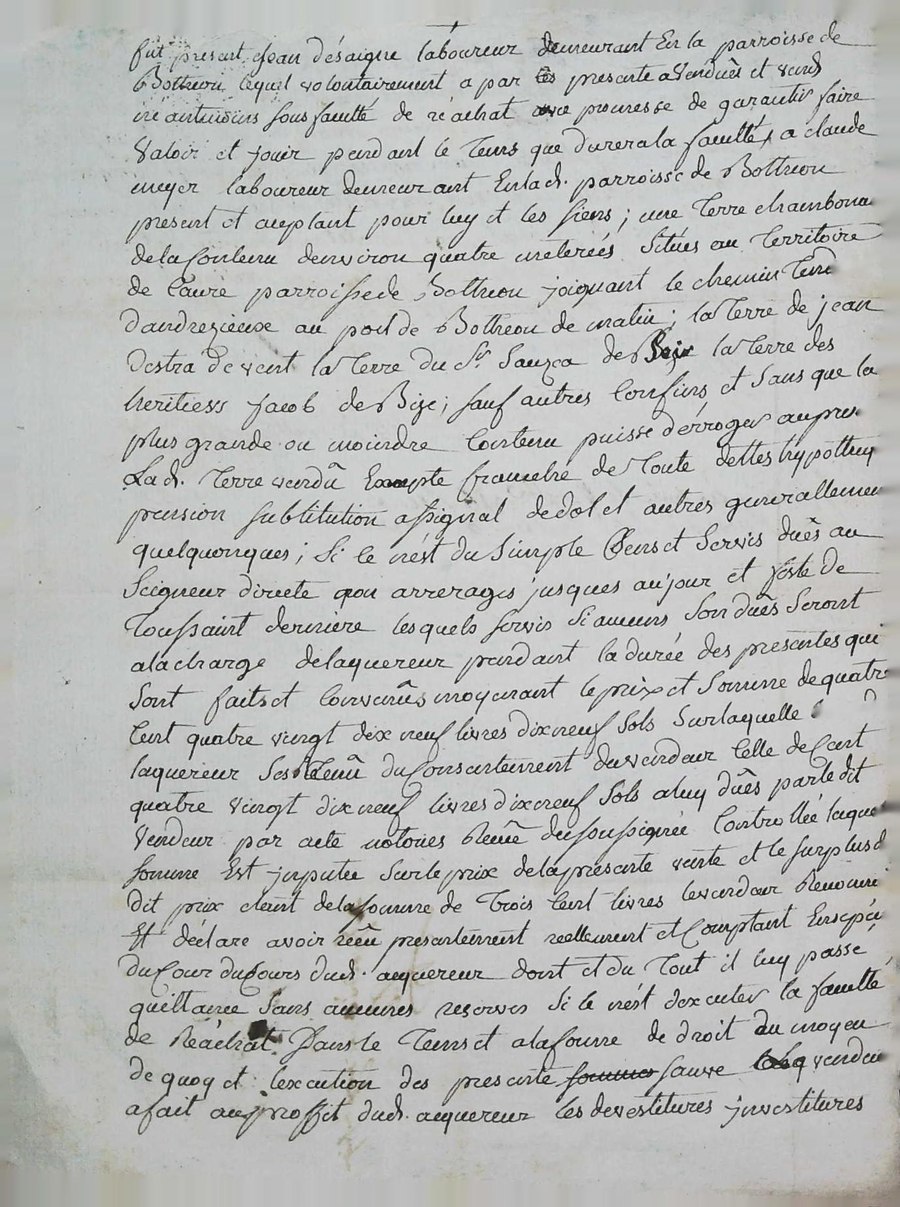 fut present jean désaigne laboureur demeurant En la parroisse de
Botheon lequel volontairement a par les presente a Vendués et vend
néantmoins sous faculté de réachat avec promesse de garantir faire
Valoir et jouir pendant le Tems que durera la faculté, a claude
laboureur demeurant En lad. parroisse de Botheon
present et acceptant pour luy et les siens; une Terre chambona
de la Contenu denviron quatre meterées Situés au Territoire
de parroisse de Botheon joignant le chemin
dandrezieux au pon de Botheon de matin; la Terre de jean
Destra de vent la Terre du Sr. Sauzea de Bize la Terre des
heritiers jacob de Bize; sauf autres Confins et Sans que la
plus grande ou moindre Contenu puisse dérroger au
Lad. Terre vendû Exempte franche de Toute dettes
pension substitution assignal de dot et autres generallemen
quelquonques; Si ce nést du Simple Cens et Servis dués au
Seigneur directe arrerages jusques au jour et feste de
Toussaint derniere lesquels servis Si aucuns Son dués Seront
a la charge delaquereur pendant la durée des presentes qui
Sont faits et Convenués moyenant le prix et Somme de quatre
Cent quatre vingt dix neuf livres dix neuf Sols Sur laquelle
laquereur Sest Retenû du Consentement du vendeur Celle de Cent
quatre vingt dix neuf livres dix neuf Sols a luy dués par le dit
Vendeur par acte notories Recû du soussignée Controllée laquel
somme Est imputée Sur le prix de la presente vente et le surplus d
dit prix etent de la somme de Trois Cent livres le vendeur
Et déclare avoir réçû presentement reellement et Comptant En
du Cour du Cours dud. acquereur dont et du Tout il luy passe
quittance Sans aucunes reserves Si ce nést dexcuter la faculté
de Réachat Dans le Tems et a la forme de droit au moyen
de quoy et lexcution des presente sauve vendeur
a fait au proffit dud. acquereur les devestitures jnvestitures